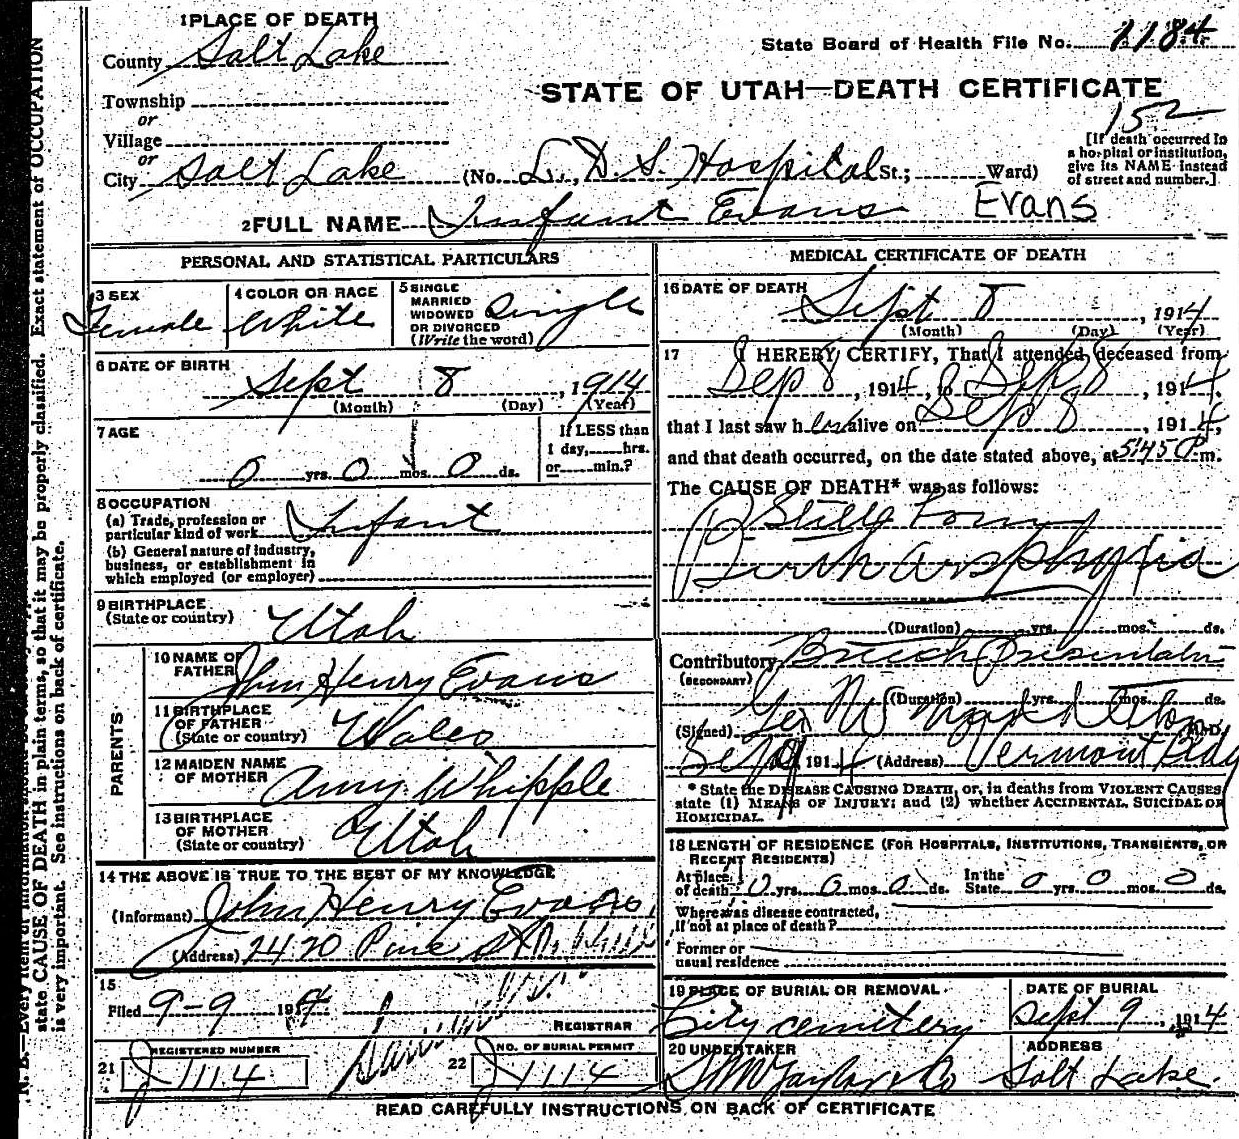 1 PLACE OF DEATH
County Salt Lake
State Board of Health File No. 1184
STATE OF UTAH—DEATH CERTIFICATE
152
Township
or
Village
or
City Salt Lake (No. L. D. S. Hospital St.; Ward)
[If death occurred in
a hospital or institution,
give its NAME instead
of street and number.]
2 FULL NAME Infant Evans Evans
PERSONAL AND STATISTICAL PARTICULARS
3 SEX
Female
4 COLOR OR RACE
White
5 SINGLE
MARRIED
WIDOWED
OR DIVORCED
(Write the word)
Single
6 DATE OF BIRTH
Sept 8, 1914
(Month) (Day) (Year)
7 AGE
0 yrs. 0 mos. 0 ds.
If LESS than
1 day, hrs.
or min.?
8 OCCUPATION
(a) Trade, profession or
particular kind of work Infant
(b) General nature of industry,
business, or establishment in
which employed (or employer)
9 BIRTHPLACE
(State or country) Utah
PARENTS
10 NAME OF
FATHER John Henry Evans
11 BIRTHPLACE
OF FATHER
(State or country) Wales
12 MAIDEN NAME
OF MOTHER Amy Whipple
13 BIRTHPLACE
OF MOTHER
(State or country) Utah
14 THE ABOVE IS TRUE TO THE BEST OF MY KNOWLEDGE
(Informant) John Henry Evans,
(Address) 2420
15
Filed 9-9 1914
REGISTRAR
21 REGISTERED NUMBER
J 1114
22 NO. OF BURIAL PERMIT
J 1114
MEDICAL CERTIFICATE OF DEATH
16 DATE OF DEATH
Sept 8, 1914
(Month) (Day) (Year)
17 I HEREBY CERTIFY, That I attended deceased from
Sep 8, 1914, to Sep 8, 1914,
that I last saw her alive on Sep 8, 1914,
and that death occurred, on the date stated above, at 5:45 P.m.
The CAUSE OF DEATH* was as follows:
Still
Birth
(Duration) yrs. mos. ds.
Contributory Breech
(SECONDARY)
(Duration) yrs. mos. ds.
(Signed) M.D.
Sep 9 1914 (Address) Vermont Bldg
* State the DISEASE CAUSING DEATH, or, in deaths from VIOLENT CAUSES
state (1) MEANS OF INJURY; and (2) whether ACCIDENTAL, SUICIDAL OR
HOMICIDAL.
18 LENGTH OF RESIDENCE (FOR HOSPITALS, INSTITUTIONS, TRANSIENTS, OR
RECENT RESIDENTS)
At place
of death 0 yrs. 0 mos. 0 ds. In the
State 0 yrs. 0 mos. 0 ds.
Where was disease contracted,
if not at place of death?
Former or
usual residence
19 PLACE OF BURIAL OR REMOVAL
City cemetery
DATE OF BURIAL
Sept 9, 1914
20 UNDERTAKER
S M Taylor & Co
ADDRESS
Salt Lake
READ CAREFULLY INSTRUCTIONS ON BACK OF CERTIFICATE
state CAUSE OF DEATH in plain terms, so that it may be properly classified. Exact statement of OCCUPATION
is very important. See instructions on back of certificate.